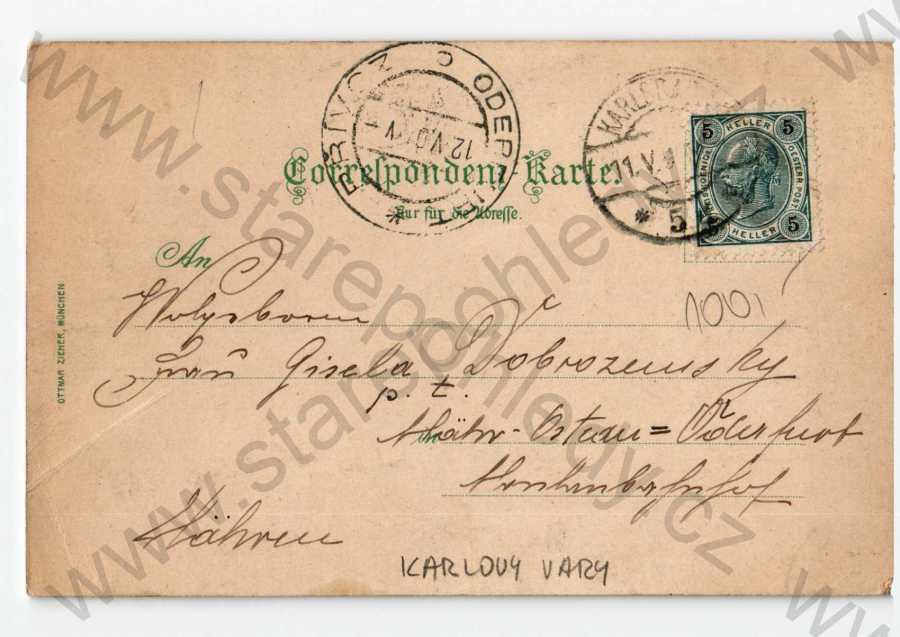 PŘÍVOZ ODERFURT
12.V.
KARLSBAD
11.V.1
5
5 HELLER 5
OESTERR. POST
5 HELLER 5
Correspondenz-Karte.
Nur für die Adresse.
An
Wolgeboren
Frau Gisela Dobrozemsky
p. t.
Mähr-Ostrau=Oderfurt
Mähren
1001
KARLOVY VARY
OTTMAR ZIEHER, MÜNCHEN
www.starepohledy.cz